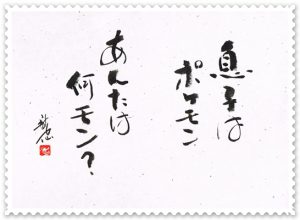 息子は
ポケモン
あんたは
何モン?